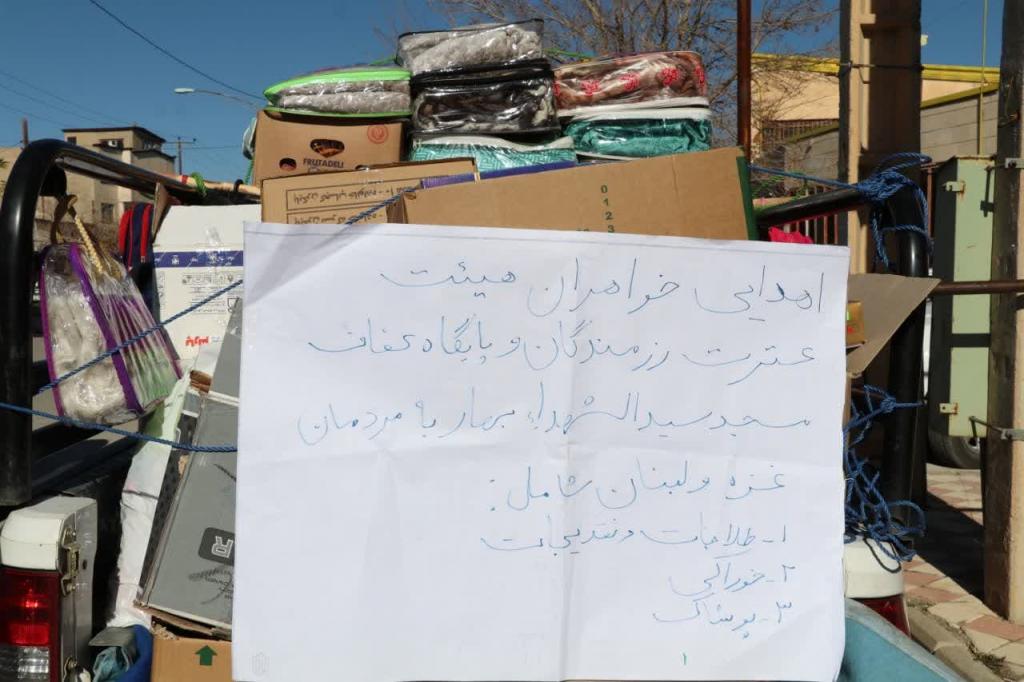 FRUTADELI
0
1
2
3
اهدایی خواهران هیئت
عترت رزمندگان و پایگاه عفاف
مسجد سیدالشهداء بهار به مردمان
غزه و لبنان شامل:
۱- طلاجات و نقدیجات
۲- خوراکی
۳- پوشاک
۱
R